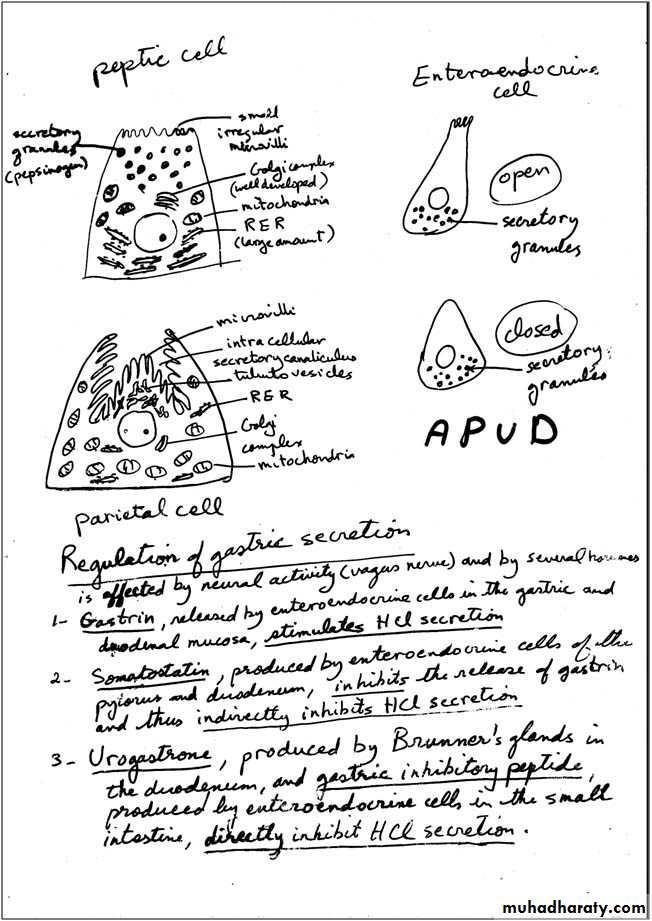 peptic cell
secretory
granules
(pepsinogen)
small
irregular
microvilli
Golgi complex
(well developed)
mitochondria
RER
(large amount)
Enteroendocrine
cell
open
secretory
granules
closed
secretory
granules
APUD
microvilli
intracellular
secretory canaliculus
tubulovesicles
RER
Golgi
complex
mitochondria
parietal cell
Regulation of gastric secretion
is affected by neural activity (vagus nerve) and by several hormones
1- Gastrin, released by enteroendocrine cells in the gastric and
duodenal mucosa, stimulates HCl secretion
2- Somatostatin, produced by enteroendocrine cells of the
pylorus and duodenum, inhibits the release of gastrin
and thus indirectly inhibits HCl secretion
3- Urogastrone, produced by Brunner's glands in
the duodenum, and gastric inhibitory peptide,
produced by enteroendocrine cells in the small
intestine, directly inhibit HCl secretion.
muhadharaty.com